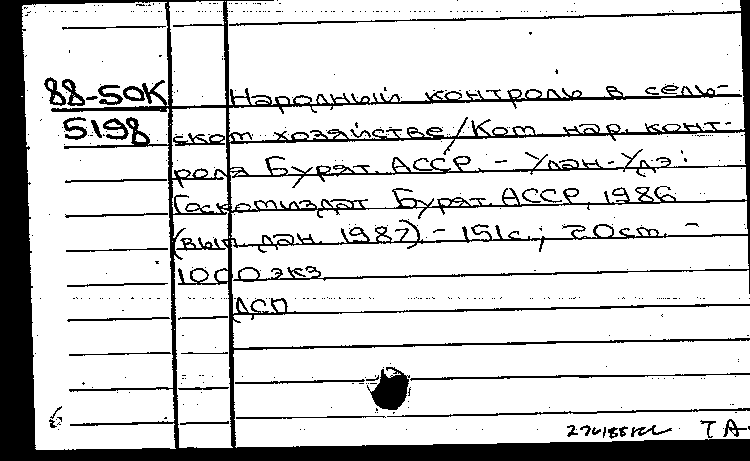 88-50К Народный контроль в сель-
5198 ском хозяйстве/Ком. нар. конт-
роля Бурят. АССР. - Улан-Удэ:
Госкомиздат Бурят. АССР, 1986
(вып. дан. 1987). - 151с.; 20см. -
1000экз.
ДСП
6
ТА